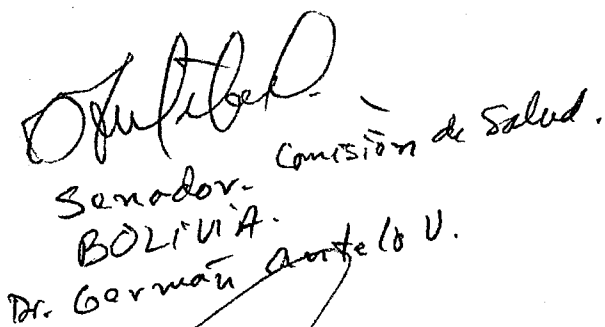 Senador. Comisión de Salud.
BOLIVIA.
Dr. Germán Antelo V.